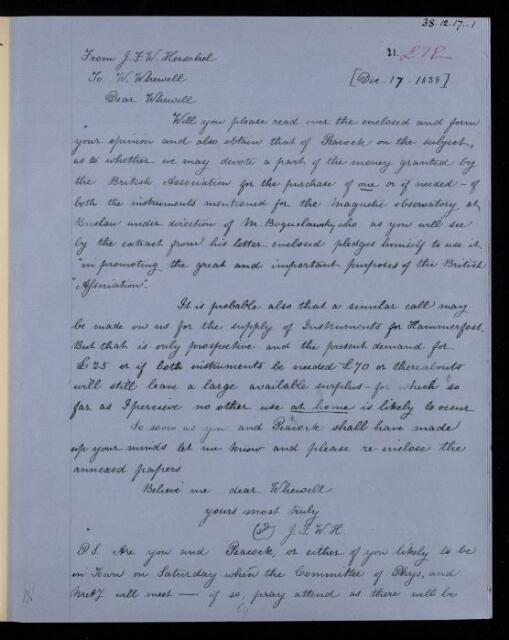 38.12.17..1
21.
From J. F. W. Herschel
To W. Whewell
[Dec. 17. 1838]
Dear Whewell
Will you please read over the enclosed and form
your opinion and also obtain that of Peacock on the subject,
as to whether we may devote a part of the money granted by
the British Association for the purchase of one or if needed - of
both the instruments mentioned for the Magnetic observatory at
Breslau under direction of M. Boguslawsky who as you will see
by the extract from his letter enclosed pledges himself to use it
"in promoting the great and important purposes of the British
"Association".
It is probable also that a similar call may
be made on us for the supply of Instruments for Hammerfest.
But that is only prospective and the present demand for
£25 or if both instruments be needed £70 or thereabouts
will still leave a large available surplus - for which so
far as I perceive no other use at home is likely to occur
So soon as you and Peacock shall have made
up your minds let me know and please re-inclose the
annexed papers
Believe me dear Whewell
yours most truly
J. F. W. H.
P.S. Are you and Peacock, or either of you likely to be
in Town on Saturday when the Committee of Phys, and
will meet — if so, pray attend as there will be